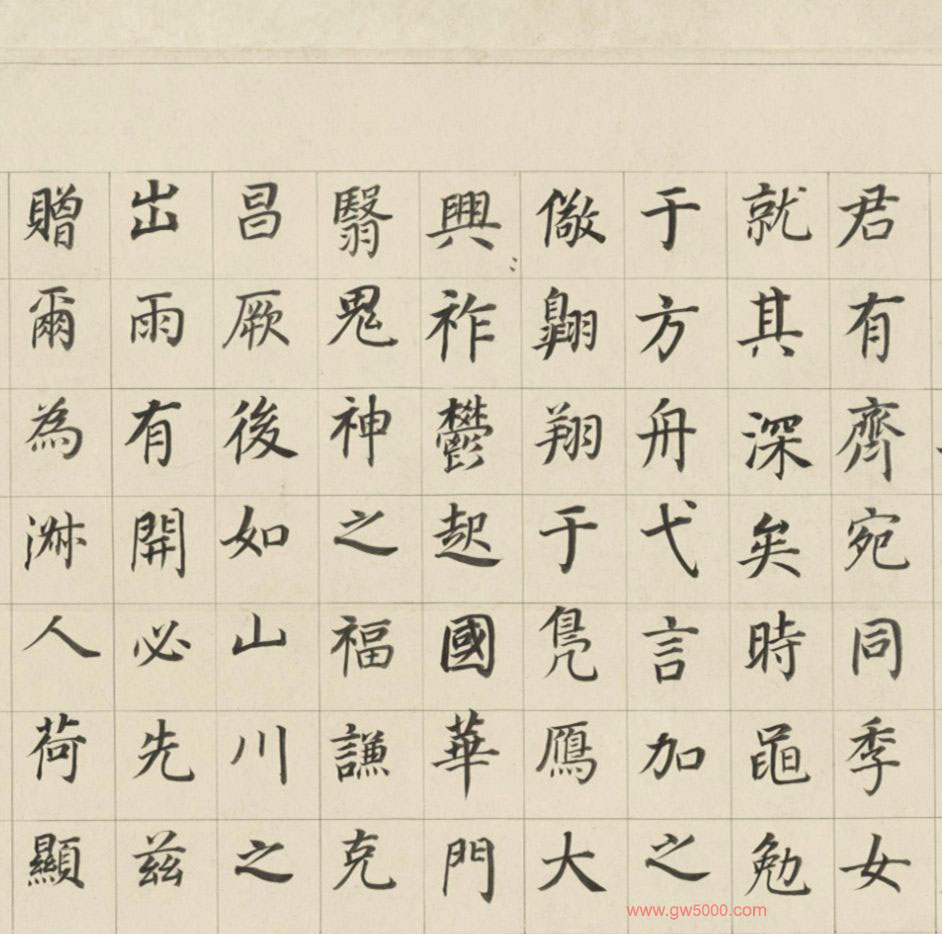 君有齊宛同季女
就其深矣時黽勉
于方舟弋言加之
儆翺翔于鳧鴈大
興祚鬱起國華門
翳鬼神之福謙克
昌厥後如山川之
出雨有開必先兹
贈爾為淑人荷顯
www.gw5000.com